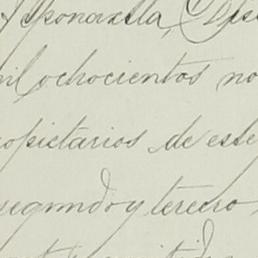 Tlponaxtla, Dis
mil ochocientos no
opietarios de este
segundo y tercero,